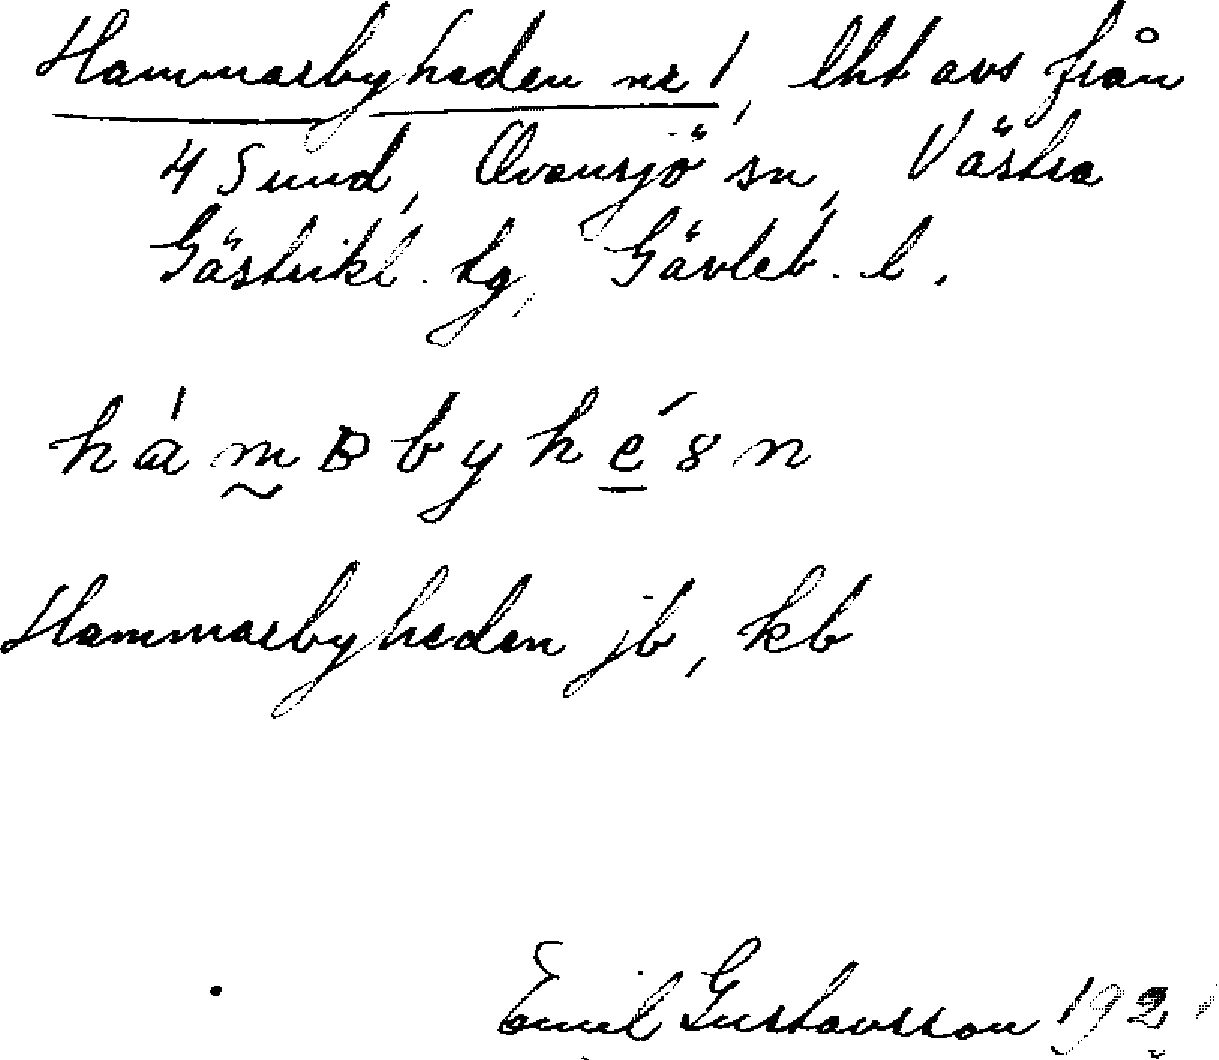 Hammarbyheden nr 1, lht avs från
4 Sund, Ovansjö sn, Västra
Gästrikl. tg, Gävleb. l.
hámʙbyhésn
Hammarbyheden jb, kb
Emil Gustavsson